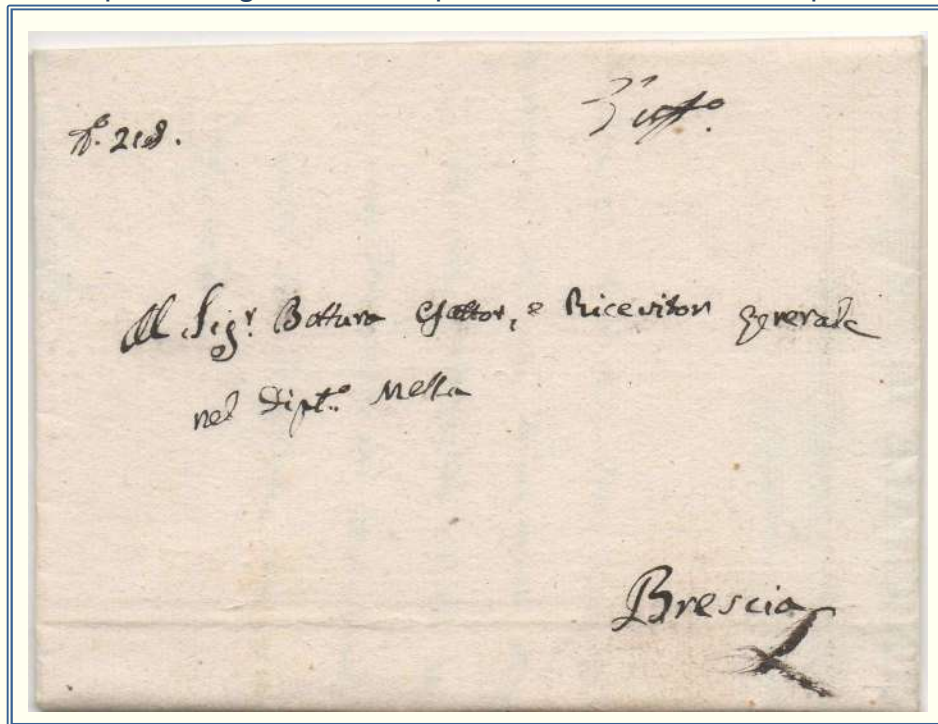 N.° 218.
Al Sig.r Bottura Esattor, e Ricevitor generale
nel Dipt.° Mella
Brescia